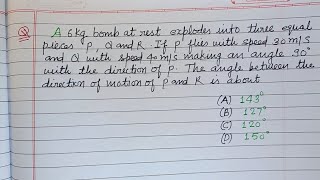 Q A 6kg bomb at rest explodes into three equal
pieces P, Q and R. If P flies with speed 30m/s
and Q with speed 40m/s making an angle 90°
with the direction of P. The angle between the
direction of motion of P and R is about
(A) 143°
(B) 127°
(C) 120°
(D) 150°